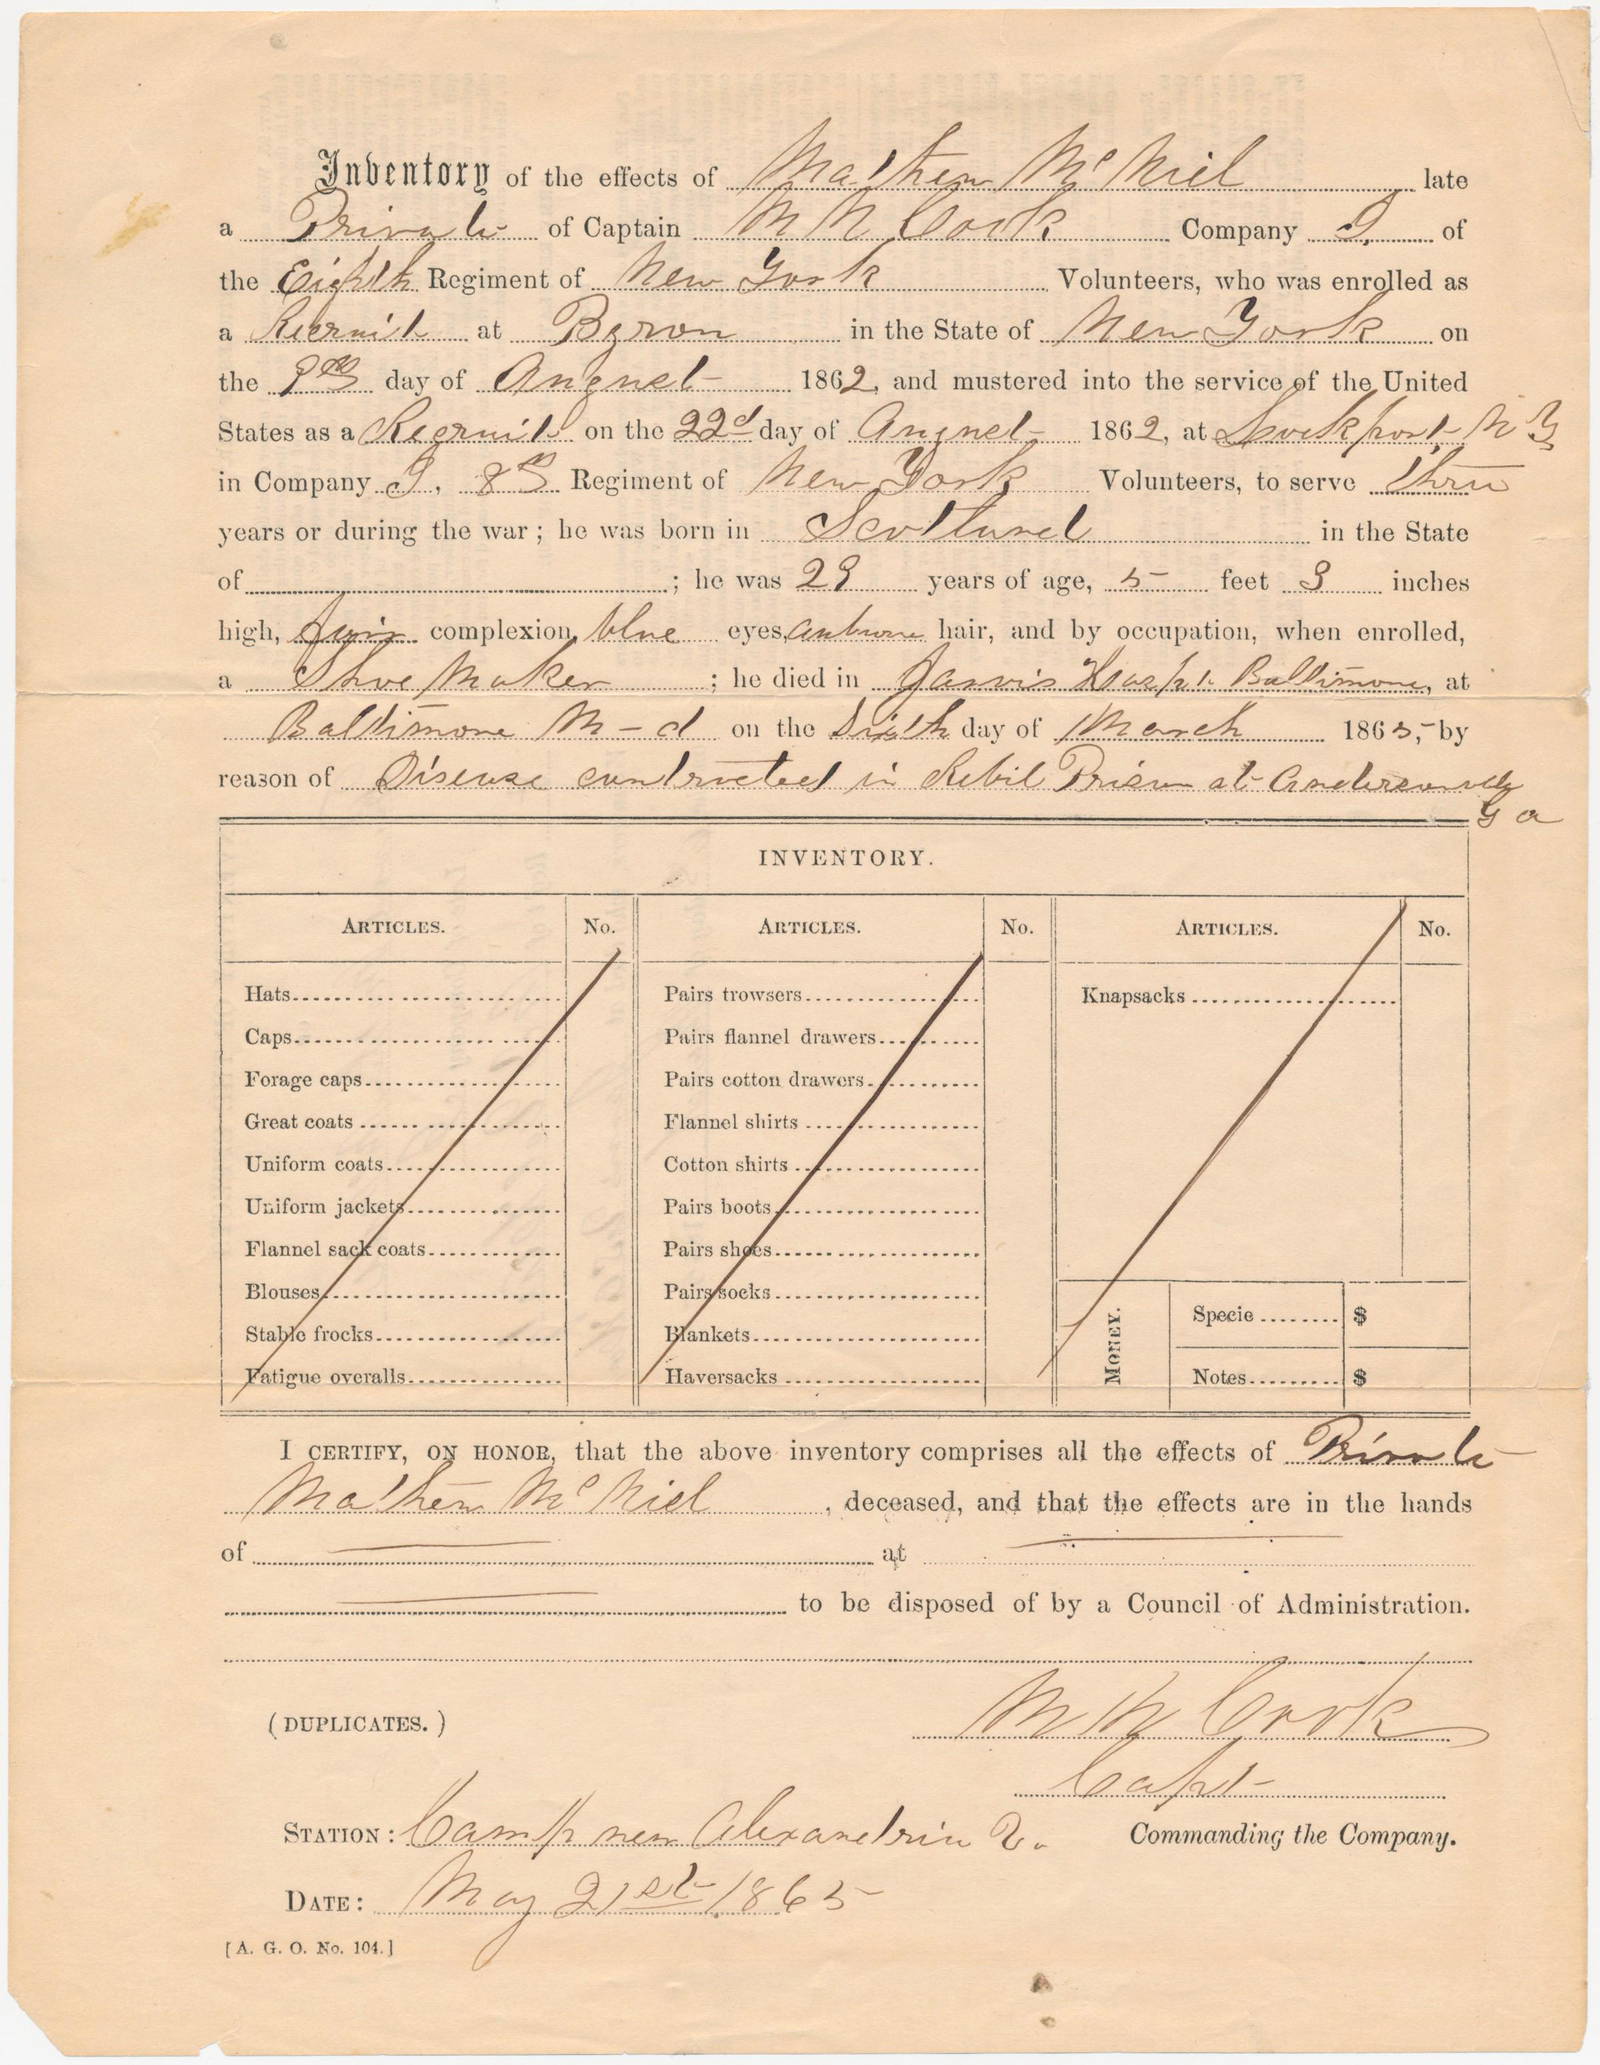 Inventory of the effects of Mathew Mc Niel late
a Private of Captain M N Cook Company I. of
the Eighth Regiment of New York Volunteers, who was enrolled as
a Recruit at Byron in the State of New York on
the 9th day of August 1862, and mustered into the service of the United
States as a Recruit on the 22d day of August 1862, at Lockport N Y
in Company I, 8th Regiment of New York Volunteers, to serve three
years or during the war; he was born in Scotland in the State
of ; he was 29 years of age, 5 feet 3 inches
high, fair complexion, blue eyes, auburn hair, and by occupation, when enrolled,
a Shoe Maker ; he died in Jarvis Hospt. Baltimore, at
Baltimore M-d on the Sixth day of March 1865, by
reason of Disease contracted in Rebil Prison at Andersonville
Ga
INVENTORY.
ARTICLES. No. ARTICLES. No. ARTICLES. No.
Hats Pairs trowsers Knapsacks
Caps Pairs flannel drawers
Forage caps Pairs cotton drawers
Great coats Flannel shirts
Uniform coats Cotton shirts
Uniform jackets Pairs boots
Flannel sack coats Pairs shoes
Blouses Pairs socks MONEY. Specie $
Stable frocks Blankets
Fatigue overalls Haversacks Notes $
I CERTIFY, ON HONOR, that the above inventory comprises all the effects of Private
Mathew Mc Niel , deceased, and that the effects are in the hands
of at
to be disposed of by a Council of Administration.
(DUPLICATES.) M N Cook
Capt
STATION: Camp near Alexandria V. Commanding the Company.
DATE: May 21st 1865
[A. G. O. No. 104.]